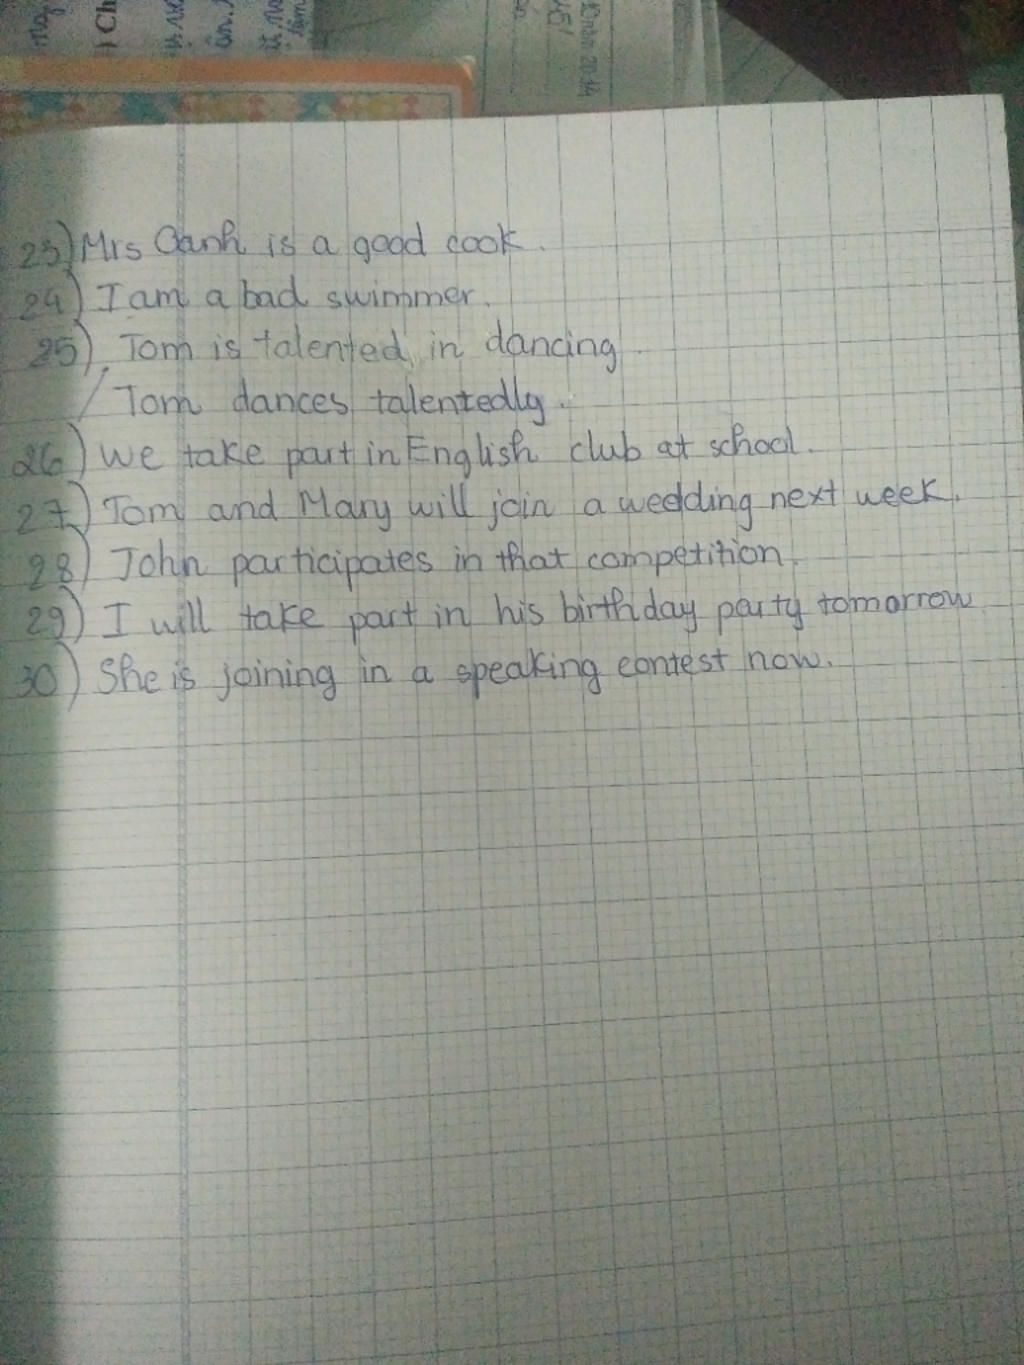 ) Ch
23) Mrs Oanh is a good cook.
24) I am a bad swimmer.
25) Tom is talented in dancing
/ Tom dances talentedly.
26) We take part in English club at school.
27) Tom and Mary will join a wedding next week.
28) John participates in that competition.
29) I will take part in his birthday party tomorrow
30) She is joining in a speaking contest now.